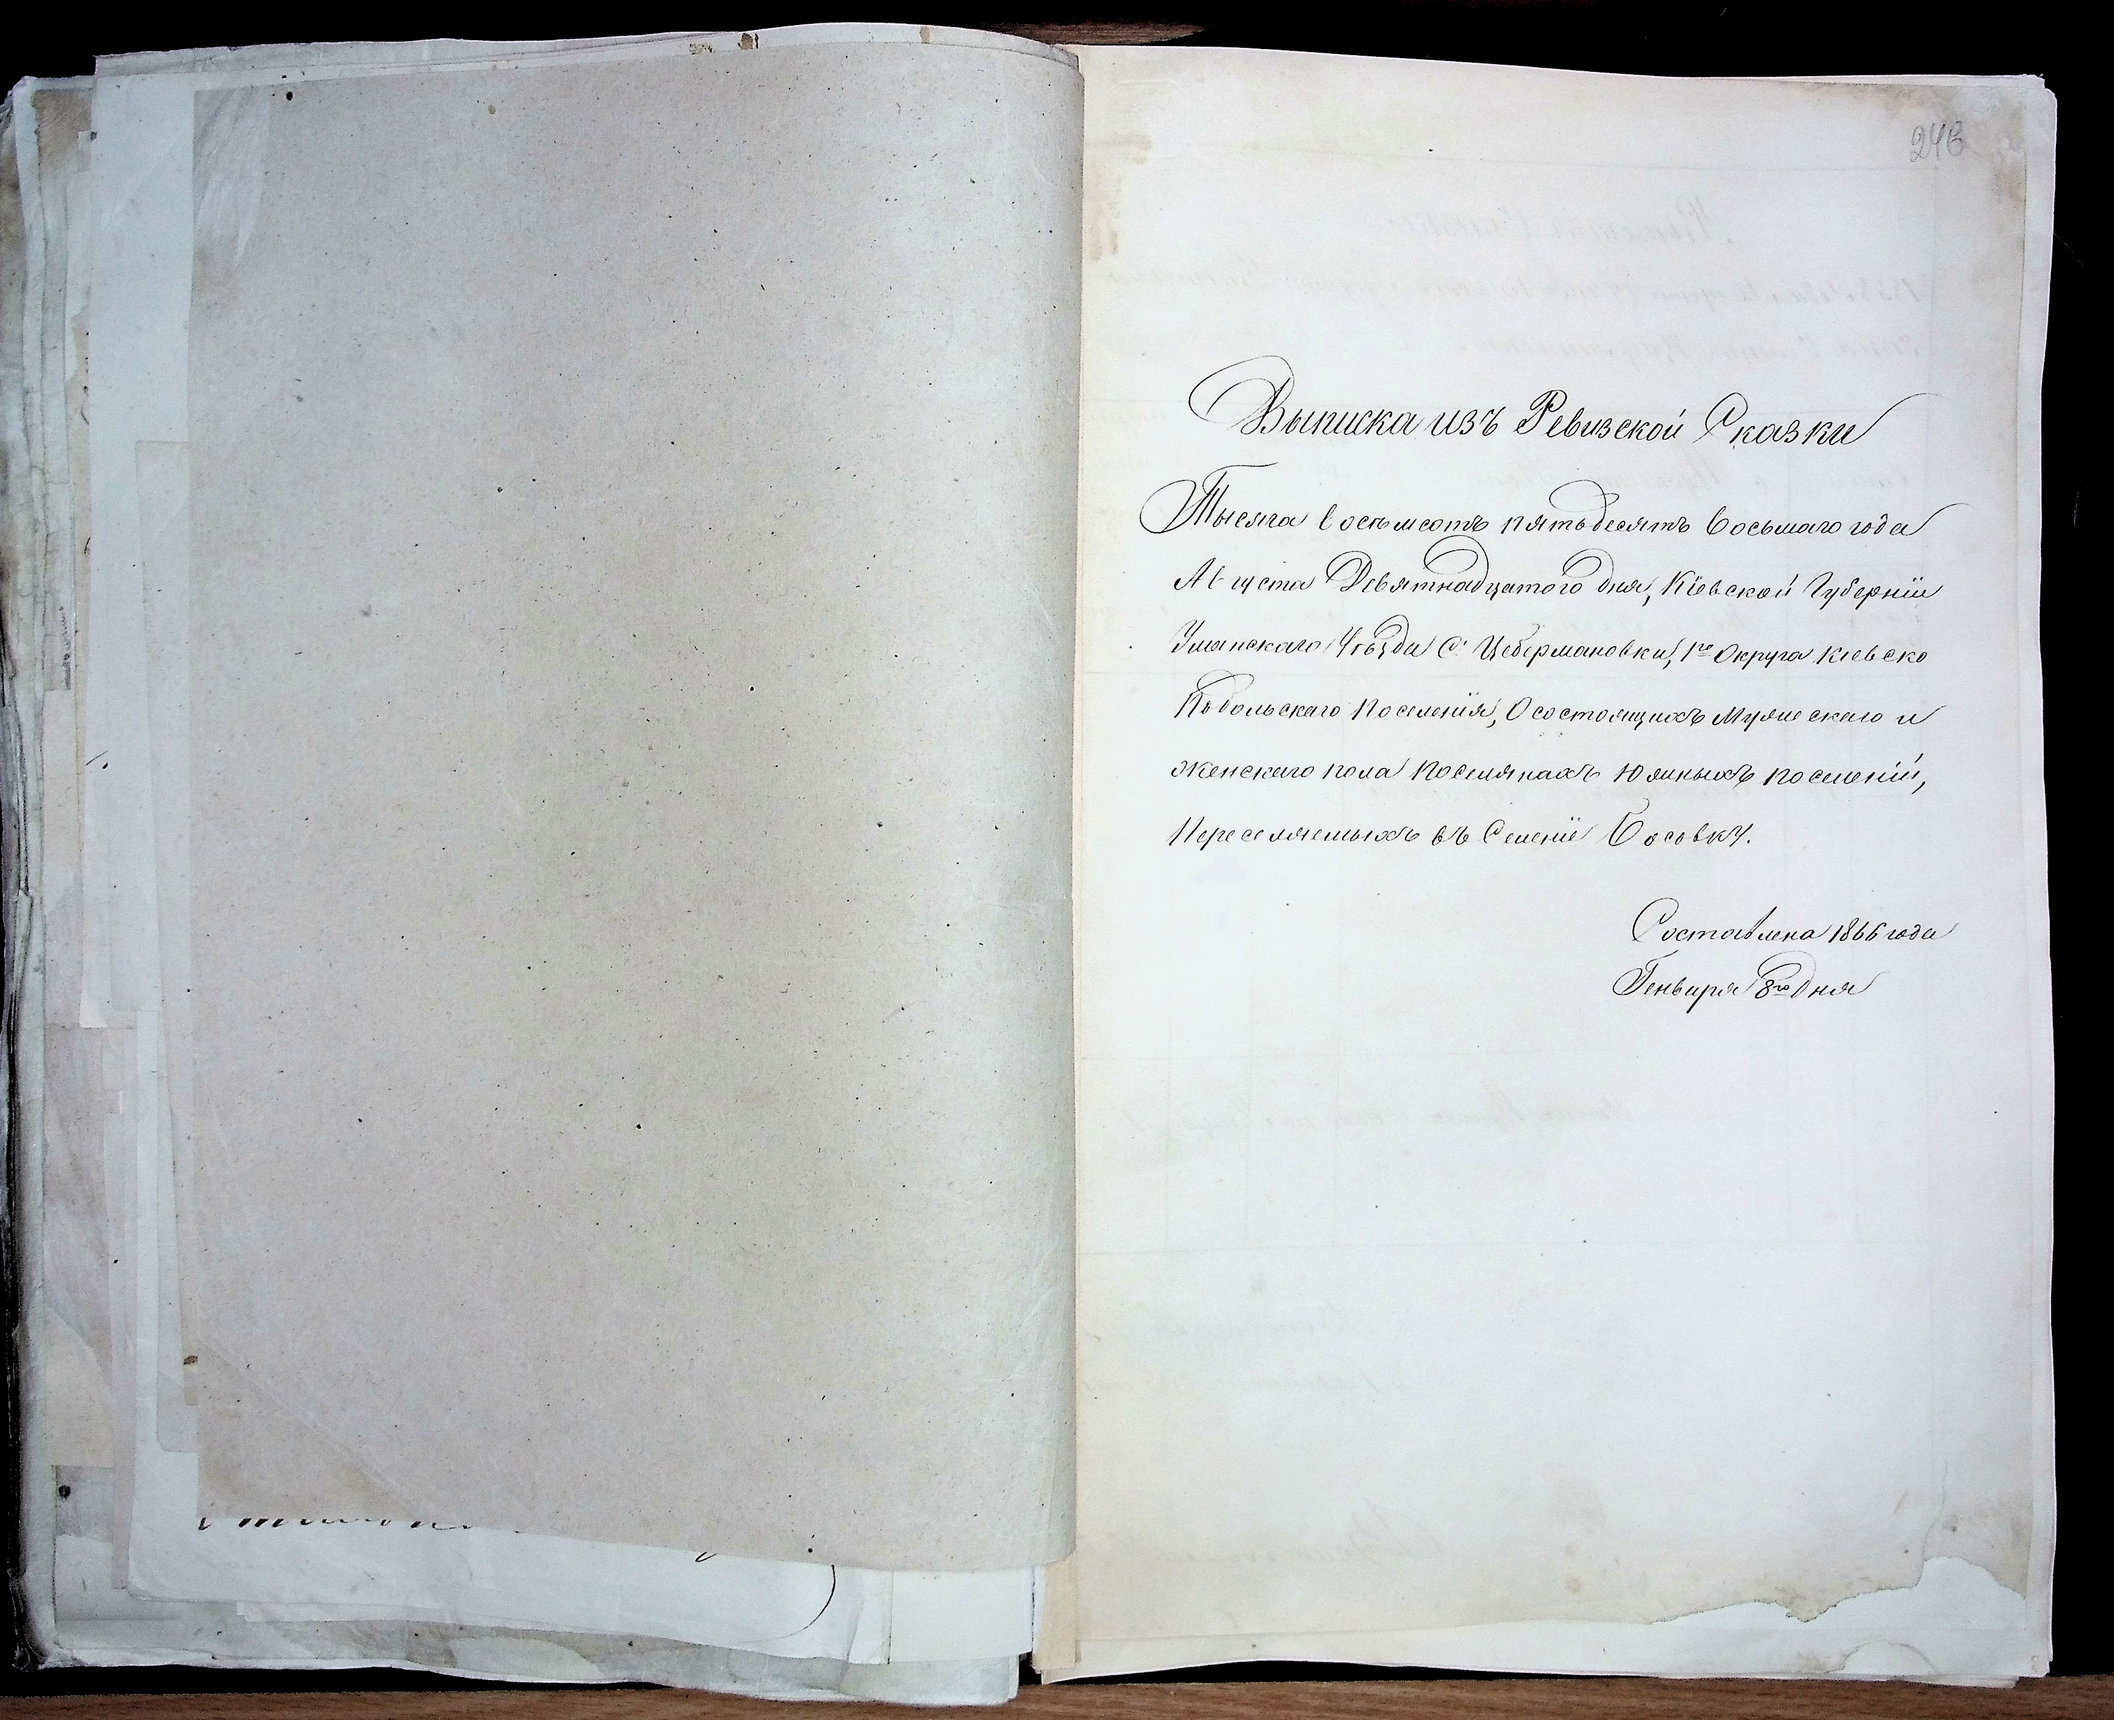 246
Выписка изъ Ревизской Сказки
Тысяча восемсотъ пятьдесятъ восьмаго года
Августа Девятнадцатого дня, Кіевской Губерніи
Уманскаго Уѣзда С. Цебермановки, 1го Округа Кіевско
Подольскаго Поселенія, О состоящихъ Мужескаго и
женскаго пола Поселянахъ Южныхъ поселеній,
Переселяемыхъ въ Селеніе Босовку.
Составлена 1866 года
Генваря 8го дня